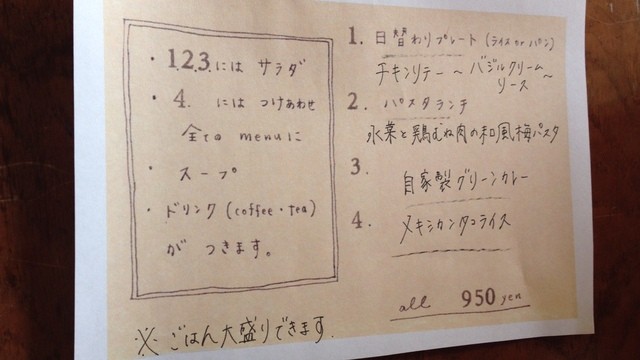 ・1.2.3.には サラダ
・4. には つけあわせ
全ての menuに
・スープ
・ドリンク (coffee・tea)
が つきます。
1. 日替わりプレート (ライス or パン)
チキンソテー ～ バジルクリーム
ソース ～
2. パスタランチ
水菜と鶏むね肉の和風梅パスタ
3.
自家製グリーンカレー
4.
メキシカンタコライス
all 950 yen
※ ごはん大盛りできます.